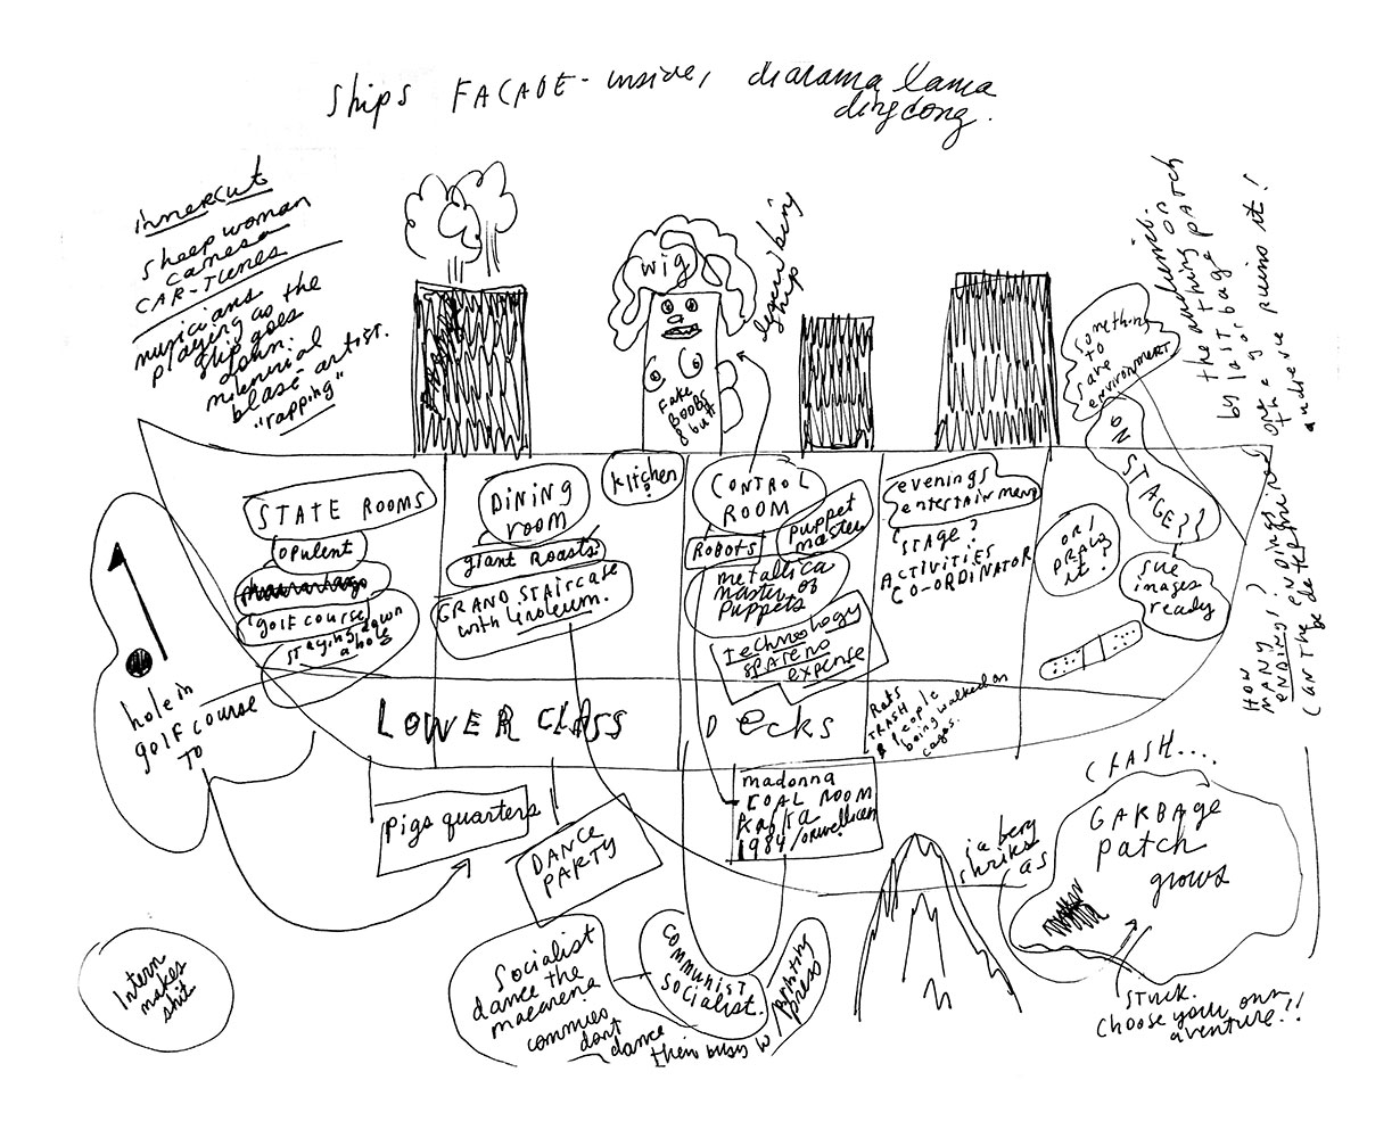 ships FACADE - inside, diarama llama
dingdong.
innercut
sheep woman
camera
CAR-TUNES
musicians
playing as the
ship goes
down.
milennial
blasé artist.
"rapping"
wig
Fake
Boobs
& butt
ship
something
to
save
environment
the audience.
by last
one
audience ruins it!
ON
STAGE??
STATE ROOMS
opulent
golf course
staying down
a hole
DINING
room
giant Roasts?
GRAND STAIRCASE
with linoleum.
kitchen
?
CONTROL
ROOM
ROBOTS
puppet
master
metallica
master of
Puppets
technology
SPARE no
expense
evenings
entertainment
STAGE?
ACTIVITIES
CO-ORDINATOR
OR I
DRAW
it?
images
ready
HOW
MANY
ENDINGS?
CAN THE ENDING
be determined
hole in
golf course
TO
LOWER CLASS DECKS
Rats
TRASH
& People
being walked on
cages.
pigs quarters
DANCE
PARTY
madonna
COAL ROOM
Kafka
1984/orwellian
as
CRASH....
GARBAGE
patch
grows
STUCK.
Choose your own
aventure!!
Intern
makes
shit
Socialist
dance the
macarena
commies
dont
dance
their busy w/
printing
press
COMMUNIST
SOCIALIST.